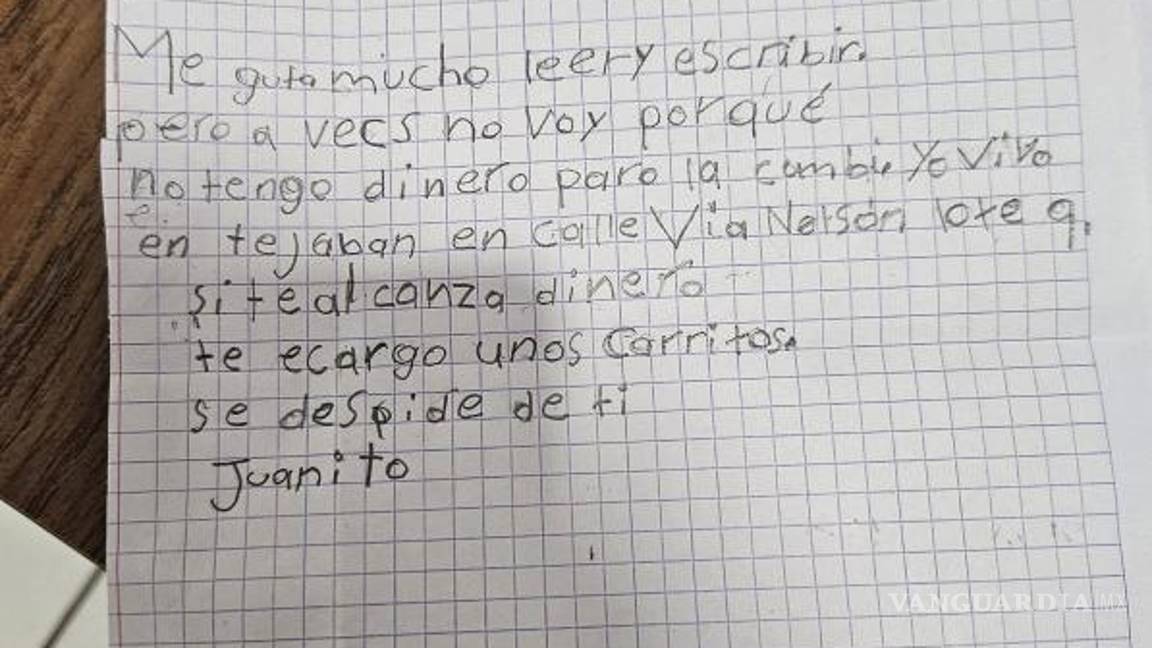 Me guta mucho leer y escribir.
pero a vecs no voy porqué
no tengo dinero para la cambi Yo Vivo
en tejaban en calle Vía Nelson lote 9.
si te alcanza dinero
te ecargo unos carritos.
se despide de ti
Juanito
VANGUARDIA MX